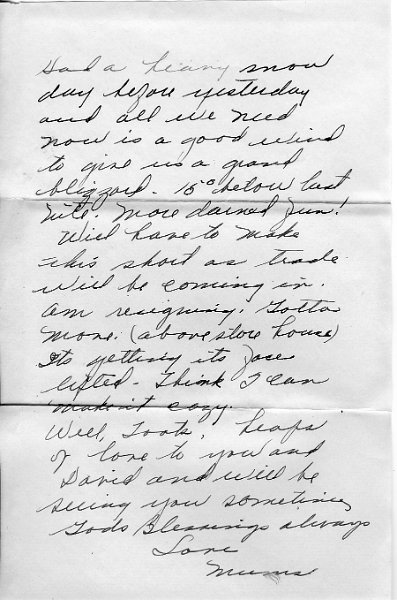 Had a heavy snow
day before yesterday
and all we need
now is a good wind
to give us a grand
blizzard - 15° below last
nite. More darned fun!
Will have to make
this short as trade
will be coming in.
Am resigning. Gotta
move. (above store house)
Its getting its face
lifted - Think I can
make it cozy.
Well, Toots, heaps
of love to you and
David and will be
seeing you sometime,
Gods Blessings always
Love
Mums